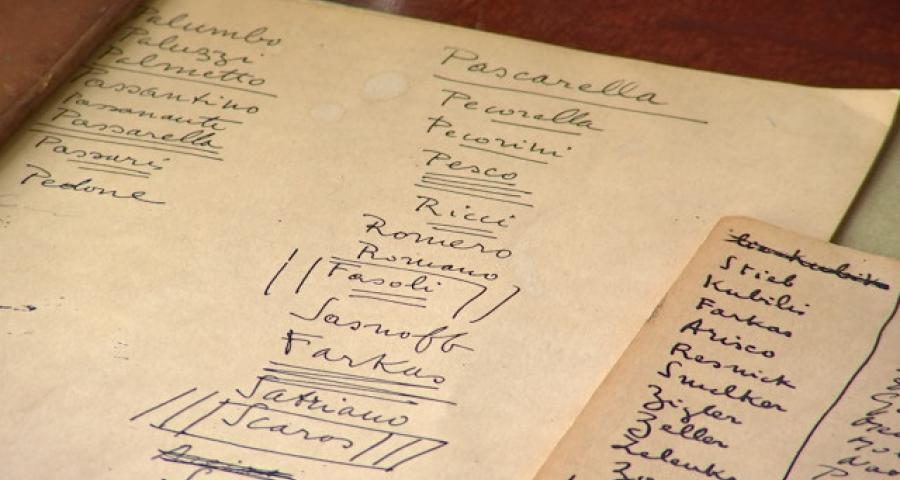 Palumbo
Paluzzi
Palmetto
Passantino
Passanauti
Passarella
Passari
Pedone
Pascarella
Pecorella
Pecorini
Pesco
Ricci
Romero
Romano
Fasoli
Sasnoff
Farkas
Satriano
Scaros
Stieb
Kubilis
Farkas
Arisco
Resnick
Smelker
Zigler
Zeller
Zelenka